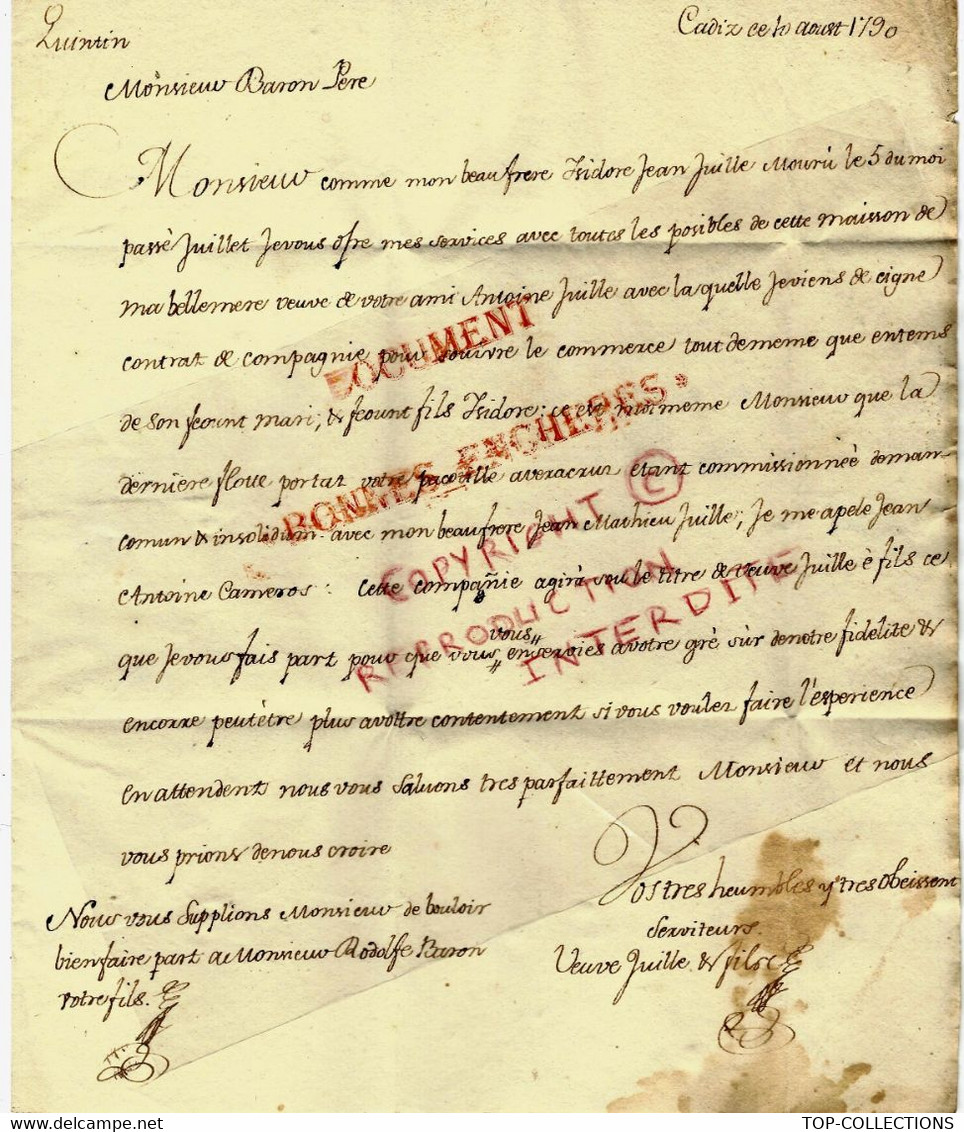 Quintin
Cadiz ce 10 aoust 1790
Monsieur Baron Pere
Monsieur comme mon beaufrere Isidore Jean Juille Mourù le 5 du moi
passè Juillet Jevous ofre mes services avec toutes les posibles de cette maisson de
ma bellemere veuve de votre ami Antoine Juille avec la quelle Jeviens de cigne
contrat de compagnie pour souivre le commerce tout dememe que entems
de son feount mari, & feount fils Isidore: ce est moimeme Monsieur que la
derniére flotte portat votre pacotille averacruz etant commissionnéé deman-
comun & insolidum avec mon beaufrere Jean Mathieu Juille; Je me apele Jean
Antoine Cameros: Cette compañie agirà sou le titre de Veuve Juille è fils ce
que Jevous fais part pour que vous vous enservoies avotre grè sùr denotre fidelite &
encorre peutètre plus avottre contentement si vous voulez faire l'esperience
En attendent nous vous saluons tres parfaittement Monsieur et nous
vous prions denous croire
Vostres heumbles y tres Obeissent
Serviteurs.
Veuve Juille & fils
Nous vous Supplions Monsieur de bouloir
bienfaire part a Monsieur Rodolfe Baron
votre fils.
DOCUMENT
BONNES ENCHERES
COPYRIGHT ©
REPRODUCTION
INTERDITE
TOP-COLLECTIONS